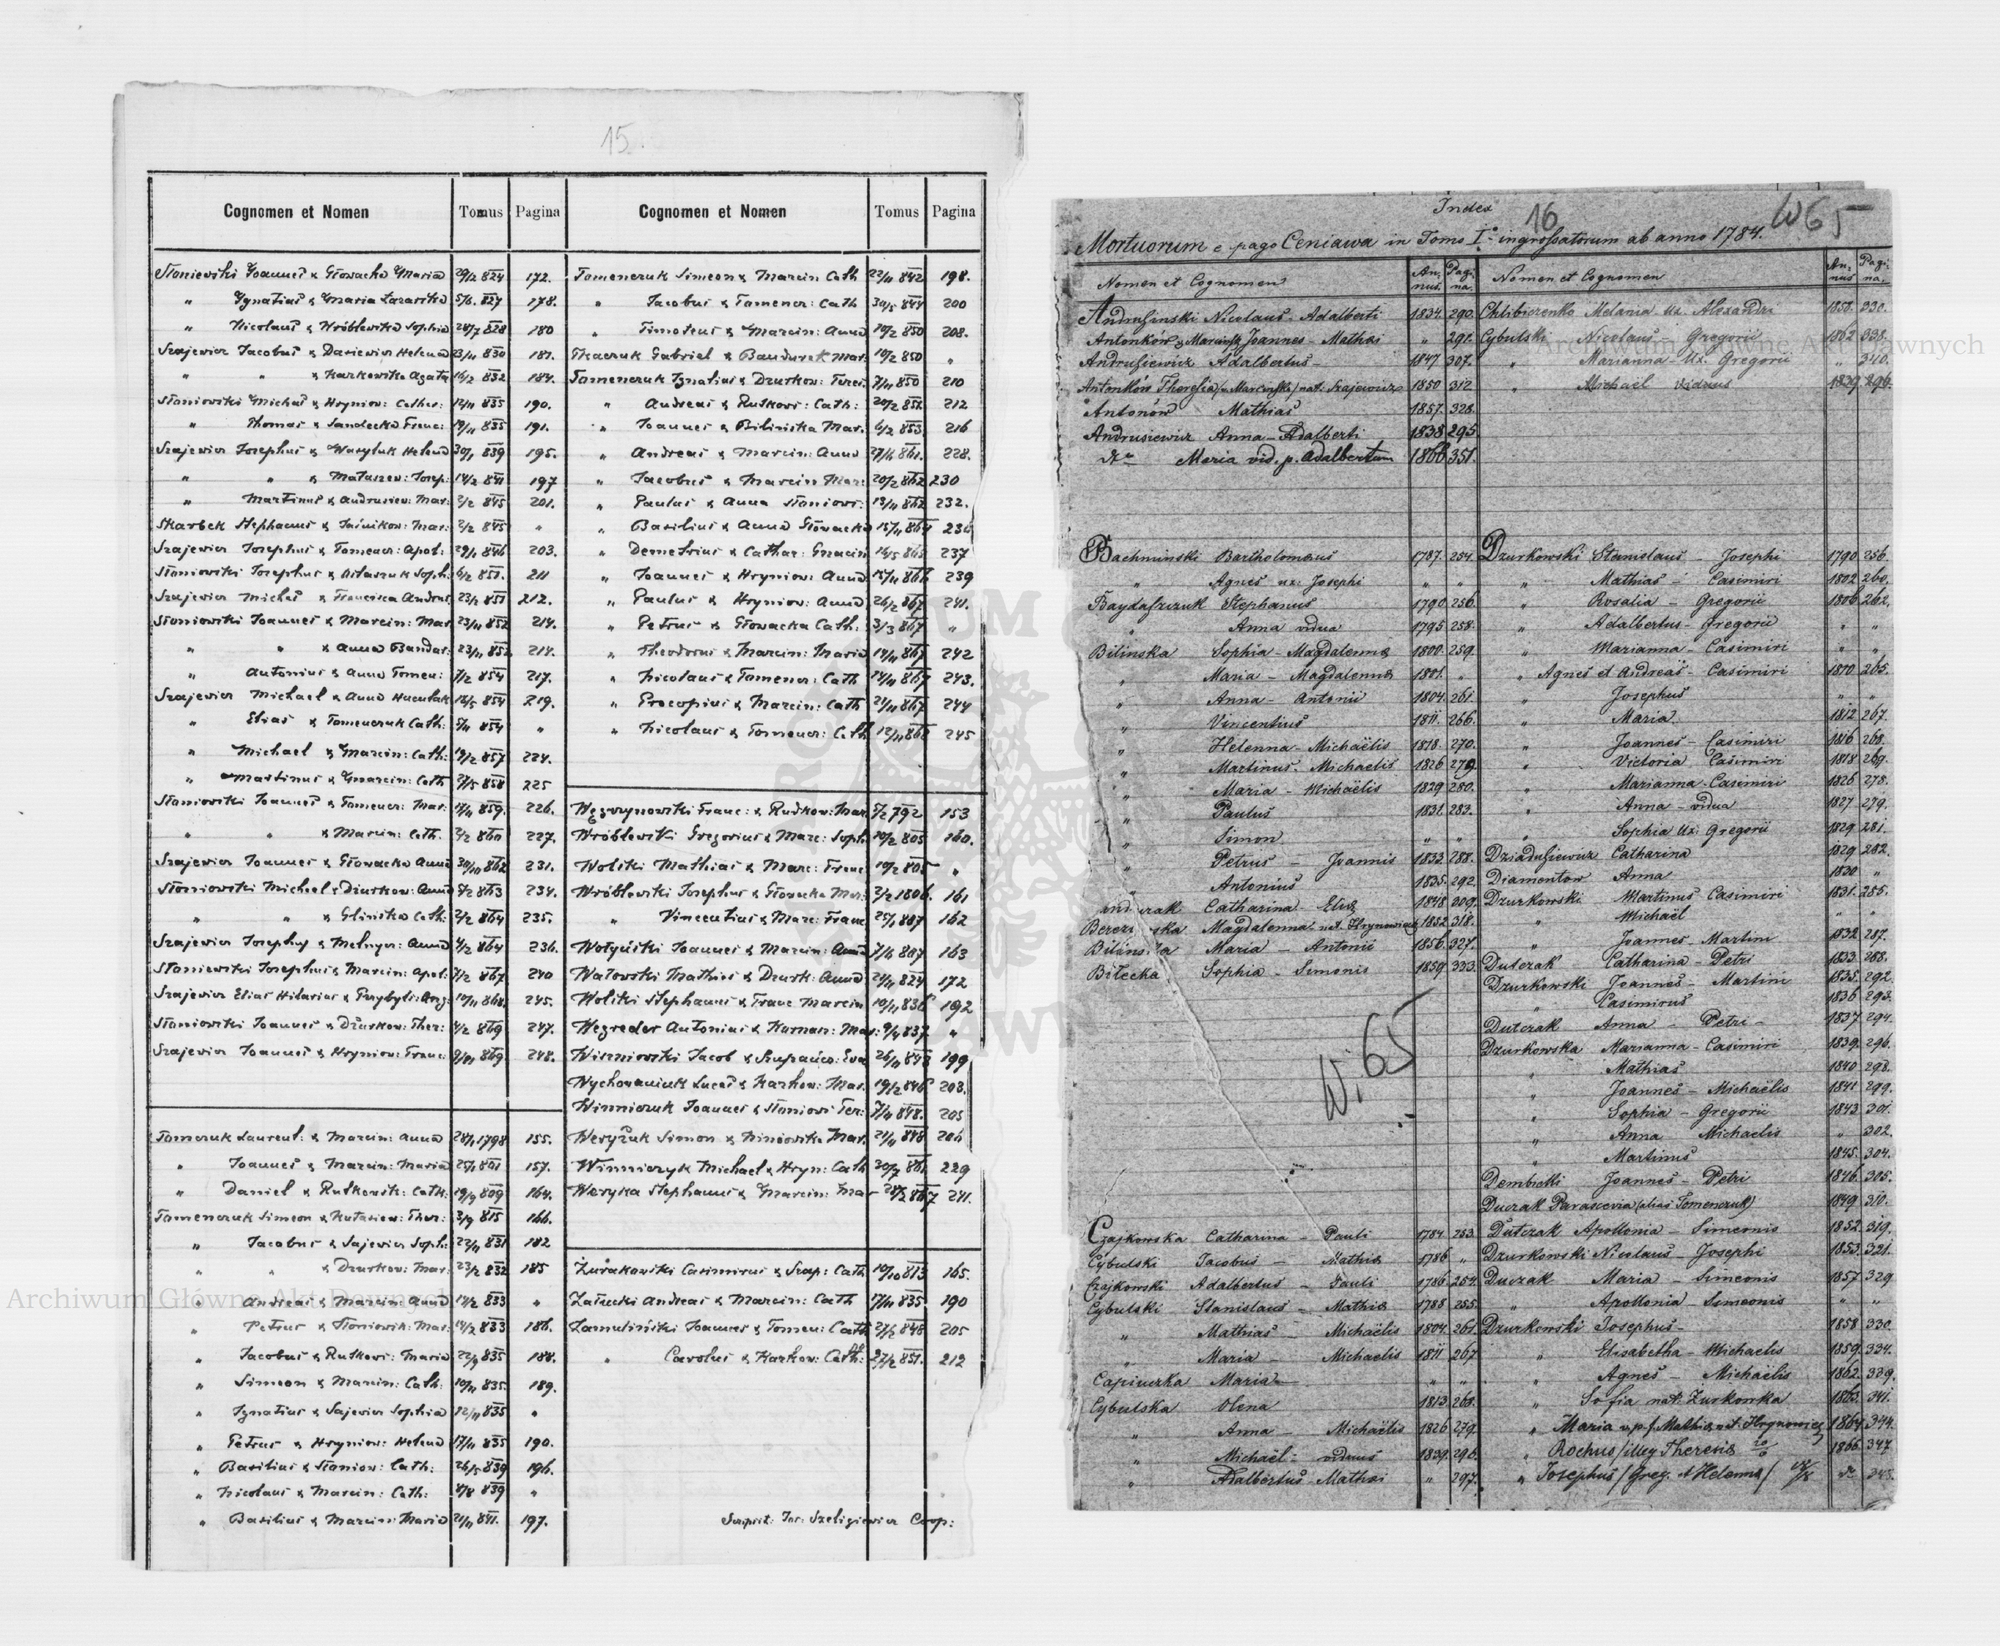 15.
Cognomen et Nomen Tomus Pagina
Słoniewski Joannes & Głowacka Maria 29/2 824 172.
" Ignatius & Maria Lazarska 5/6 827 178.
" Nicolaus & Wróblewska Sophia 28/7 828 180
Szajewicz Jacobus & Dasiewicz Helena 23/11 830 181.
" " & Karkowska Agata 16/2 832 184.
Słoniowski Michał & Hryniow: Cather: 12/11 835 190.
" Thomas & Sandecka Franc: 19/11 835 191.
Szajewicz Josephus & Wasyluk Helena 30/1 839 195.
" " & Matuszew: Josep: 14/2 841 197
" Martinus & Andrusiew: Mar: 2/2 845 201.
Skarbek Stephanus & Jaśnikow: Mar: 2/2 845 "
Szajewicz Josephus & Tomencz: Apol: 29/11 846 203.
Słoniowski Josephus & Ostaszuk Soph: 6/2 851. 211
Szajewicz Michał & Francisca Andrus: 23/2 851 212.
Słoniowski Joannes & Marcin: Mar 23/11 852 214.
" " & Anna Bandur: 23/11 852 214.
" Antonius & Anna Tomen: 7/2 854 217.
Szajewicz Michael & Anna Huculak 16/5 854 219.
" Elias & Tomenczuk Cath: 5/11 854 "
" Michael & Marcin: Cath: 19/2 857 224.
" Martinus & Marcin: Cath 2/5 858 225
Słoniowski Joannes & Tomencz: Mar: 17/11 859. 226.
" " & Marcin: Cath. 2/2 860 227.
Szajewicz Joannes & Głowacka Anna 30/11 862 231.
Słoniowski Michael & Dzurkow: Anna 8/2 863 234.
" " & Glinska Cath: 2/2 864 235.
Szajewicz Josephus & Melnycz: Anna 4/2 864 236.
Słoniewski Josephus & Marcin: Apol: 7/2 867 240
Szajewicz Elias Hilarius & Przybyl: Ang: 10/11 868. 245.
Słoniowski Joannes & Dzurkow: Ther: 4/2 869 247.
Szajewicz Joannes & Hryniow: Franc: 9/11 869 248.
Tomczuk Laurent: & Marcin: Anna 28/1 1798 155.
" Joannes & Marcin: Maria 25/1 801 157.
" Daniel & Rutkowsk: Cath: 19/9 809 164.
Tomenczuk Simeon & Kutasiew: Ther: 3/9 815 166.
" Jacobus & Sajewicz Soph: 22/11 831 182
" " & Dzurkow: Mar: 23/2 832 185
" Andreas & Marcin: Anna 12/2 833 "
" Petrus & Słoniowsk: Mar: 14/2 833 186.
" Jacobus & Rutkows: Maria 22/9 835 188.
" Simeon & Marcin: Cath: 10/11 835. 189.
" Ignatius & Sajewicz Sophia 12/11 835 "
" Petrus & Hryniow: Helena 17/11 835 190.
" Basilius & Słoniow: Cath: 26/5 839 196.
" Nicolaus & Marcin: Cath: 8/8 839 "
" Basilius & Marcin: Maria 21/11 841. 197.
Cognomen et Nomen Tomus Pagina
Tomenczuk Simeon & Marcin Cath 22/11 842 198.
" Jacobus & Tomencz: Cath 30/5 844 200
" Timoteus & Marcin: Anna 19/2 850 208.
Tkaczuk Gabriel & Bandurek Mar: 19/2 850 "
Tomenczuk Ignatius & Dzurkow: Teres: 7/11 850 210
" Andreas & Rutkows: Cath: 20/2 851. 212
" Joannes & Bilińska Mar. 6/2 853. 216
" Andreas & Marcin: Anna 27/6 861. 228.
" Jacobus & Marcin Mar: 20/2 862 230
" Paulus & Anna Słoniows: 13/11 862 232.
" Basilius & Anna Głowacka 15/11 864 236
" Demetrius & Cathar: Marcin 14/5 865 237
" Joannes & Hryniow: Anna 15/11 866 239
" Paulus & Hryniow: Anna 26/2 867 241.
" Petrus & Głowacka Cath: 3/3 867 "
" Theodorus & Marcin: Maria 14/11 867 242
" Nicolaus & Tomencz: Cath 24/11 867 243.
" Procopius & Marcin: Cath 21/11 867 244
" Nicolaus & Tomencz: Cath 12/11 868 245
Węgrynowski Franc: & Rudkow: Mar 5/2 792 153
Wróblewski Gregorius & Marc: Soph 10/2 805 160.
Wolski Mathias & Marc: Franc 19/2 805 "
Wróblewski Josephus & Głowacka Mar: 2/2 1806. 161
" Vincentius & Marc: Franc 25/1 807 162
Wołyński Joannes & Marcin: Anna 7/6 807 163
Watowski Mathias & Dzurk: Anna 24/11 824 172
Wolski Stephanus & Franc Marcin 19/11 836 192
Wegreder Antonius & Kurman: Mar: 9/4 837 "
Wiszniowski Jacob & Szupańco: Eva 26/11 843 199
Wychowaniuk Lucas & Karkow: Mar. 19/2 846 203.
Winniczuk Joannes & Słoniows: Ter: 7/11 848. 205
Weryżuk Simon & Niniowska Mar. 21/11 848 206
Winniczyk Michael & Hryn: Cath 30/7 861 229
Weryka Stephanus & Marcin: Ma 28/2 867 241.
Żurakowski Casimirus & Szap: Cath 10/10 813 165.
Załucki Andreas & Marcin: Cath 17/11 835 190
Zamuliński Joannes & Tomen: Cath 27/2 848 205
" Carolus & Karkow: Cath: 27/2 851. 212
Scripsit: Jos: Szeligiewicz Coop:
Index
16
W65
Mortuorum e pago Ceniawa in Tomo I° ingrossatorum ab anno 1784.
Nomen et Cognomen Annus. Pagina.
Andrusinski Nicolaus Adalberti 1834. 290.
Antonkow & Marcinsk Joannes Mathei " 291.
Andrusiewicz Adalbertus 1847 307.
Antonków Theresia /Marcinska/ nat. Szajewicz 1850 312
Antonów Mathias 1857. 328.
Andrusiewicz Anna Adalberti 1838 295
dto Maria vid. p. Adalbertum 1866 351.
Bachminski Bartholomeus 1787. 254.
" Agnes ux: Josephi " "
Baydafszuk Stephanus 1790 256
" Anna vidua 1795 258.
Bilinska Sophia - Magdalenna 1800. 259.
" Maria - Magdalenna 1801. "
" Anna - Antonii 1804. 261.
" Vincentius 1811. 266.
" Helenna - Michaëlis 1818. 270.
" Martinus - Michaelis 1826 279
" Maria - Michaëlis 1829 280.
" Paulus 1831 283.
" Simon " "
" Petrus - Joannis 1833 288.
" Antonius 1835. 292.
Catharina 1848 309.
Magdalenna nat. Hrynowiecz 1852 318.
Bilinska Maria - Antonii 1856. 327.
Bilecka Sophia - Simonis 1859. 333.
W. 65
Czajkowska Catharina - Pauli 1784. 253
Cybulski Jacobus - Mathia 1786 "
Czajkowski Adalbertus - Pauli 1786. 254.
Cybulski Stanislaus - Mathia 1788 255.
" Mathias - Michaëlis 1804. 261
" Maria - Michaelis 1811 267
Capiuczka Maria " "
Cybulska Olena 1813 268.
" Anna - Michaëlis 1826 279.
" Michaël - viduus 1829. 296.
" Adalbertus Mathei " 297.
Nomen et Cognomen Annus Pagina.
Chlibiczenko Melania ux. Alexandri 1858. 330.
Cybulski Nicolaus Gregorii 1862 338.
" Marianna - Ux. Gregorii " 340.
" Michaël viduus 1829 296.
Dzurkowski Stanislaus - Josephi 1790 256.
" Mathias - Casimiri 1802 260.
" Rosalia - Gregorii 1806 262.
" Adalbertus - Gregorii " "
" Marianna - Casimiri " "
" Agnes et Andreas - Casimiri 1810 265.
" Josephus " "
" Maria 1812 267.
" Joannes - Casimiri 1816 268.
" Victoria Casimiri 1818 269.
" Marianna - Casimiri 1826 278.
" Anna - vidua 1827 279.
" Sophia Ux: Gregorii 1829 281.
Dziadusiewicz Catharina 1829 282.
Diamentow Anna 1830 "
Dzurkowski Martinus Casimiri 1831. 285.
" Michaël " "
" Joannes - Martini 1832 287.
Dutczak Catharina - Petri 1833 288.
Dzurkowski Joannes - Martini 1835. 292.
" Casimirus 1836 293.
Dutczak Anna - Petri 1837 294.
Dzurkowska Marianna - Casimiri 1839. 296.
" Mathias 1840 298.
" Joannes - Michaëlis 1841 299.
" Sophia - Gregorii 1843 301.
" Anna Michaelis " 302.
" Martinus 1845. 304.
Dembicki Joannes - Petri 1846. 305.
Duczak Parascevia (alias Tomenczuk) 1849 310.
Dutczak Apollonia - Simeonis 1852 319.
Dzurkowski Nicolaus - Josephi 1853. 321.
Duczak Maria - Simeonis 1857. 329
" Apollonia - Simeonis " "
Dzurkowski Josephus 1858 330.
" Elisabetha - Michaelis 1859. 334.
" Agnes - Michaëlis 1862. 339.
" Sofia nat. Zurkowska 1863. 341.
" Maria Mathia nat. Hrynowiecz 1864. 344.
" Rochus /illeg Theresia 1866. 347
" Josephus / Greg. et Helenna / dto 345.
Archiwum Główne Akt Dawnych
Archiwum Główne Akt Dawnych